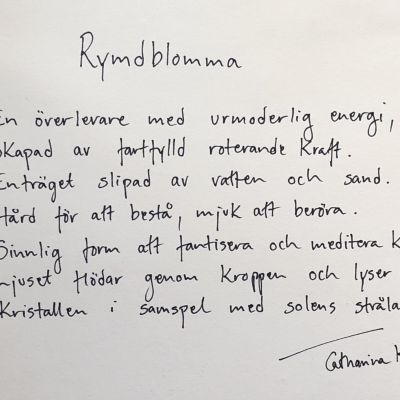 Rymdblomma
En överlevare med urmoderlig energi,
skapad av fartfylld roterande kraft.
Enträget slipad av vatten och sand.
Hård för att bestå, mjuk att beröra.
Sinnlig form att fantisera och meditera k
Ljuset flödar genom kroppen och lyser
Kristallen i samspel med solens stråla
Catharina